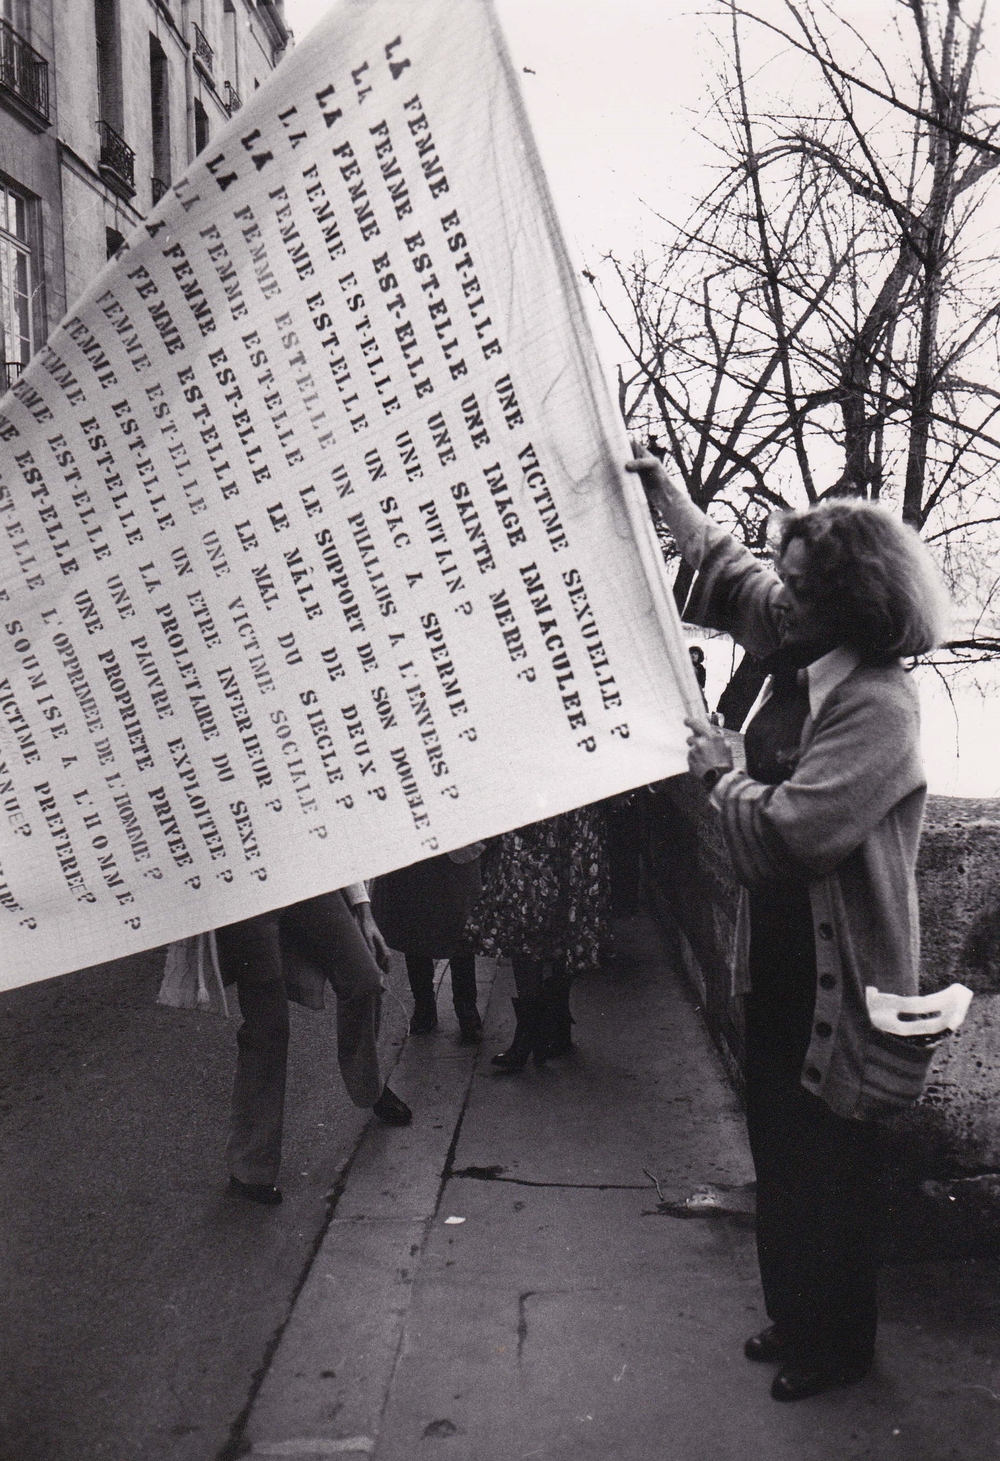 LA FEMME EST-ELLE UNE VICTIME SEXUELLE ?
LA FEMME EST-ELLE UNE IMAGE IMMACULEE ?
LA FEMME EST-ELLE UNE SAINTE MERE ?
LA FEMME EST-ELLE UNE PUTAIN ?
LA FEMME EST-ELLE UN SAC A SPERME ?
LA FEMME EST-ELLE UN PHALLUS A L'ENVERS ?
LA FEMME EST-ELLE LE SUPPORT DE SON DOUBLE ?
LA FEMME EST-ELLE LE MÂLE DE DEUX ?
FEMME EST-ELLE LE MAL DU SIECLE ?
FEMME EST-ELLE UNE VICTIME SOCIALE ?
FEMME EST-ELLE UN ETRE INFERIEUR ?
EST-ELLE LA PROLETAIRE DU SEXE ?
EST-ELLE UNE PAUVRE EXPLOITEE ?
EST-ELLE UNE PROPRIETE PRIVEE ?
ST-ELLE L'OPPRIMEE DE L'HOMME ?
SOUMISE A L'HOMME ?
VICTIME PREFEREE?
NUE?